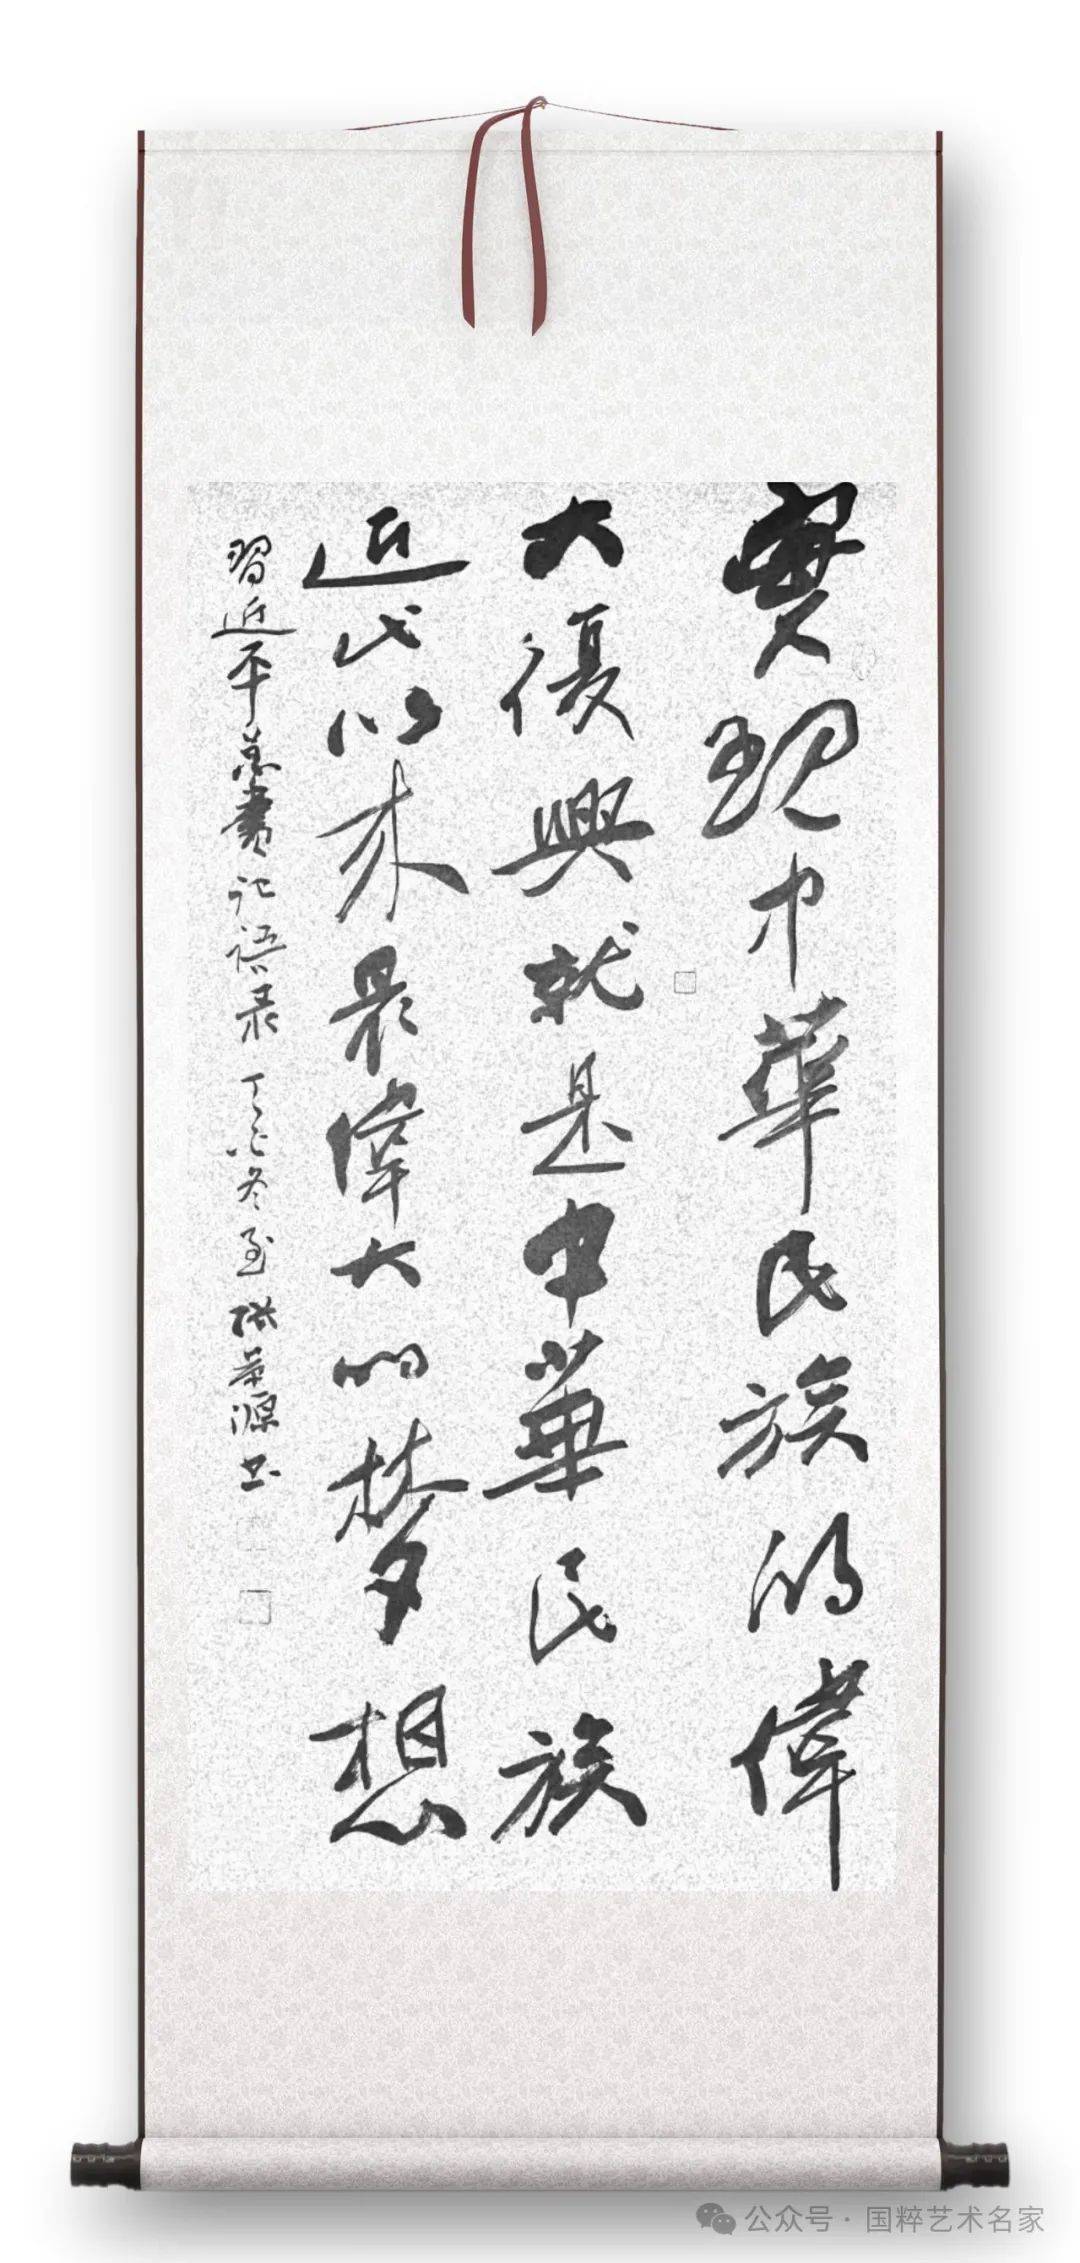 實現中華民族的偉
大復興就是中華民族
近代以来最偉大的梦想
習近平总書記語录 丁酉冬至 源书
公众号 · 国粹艺术名家